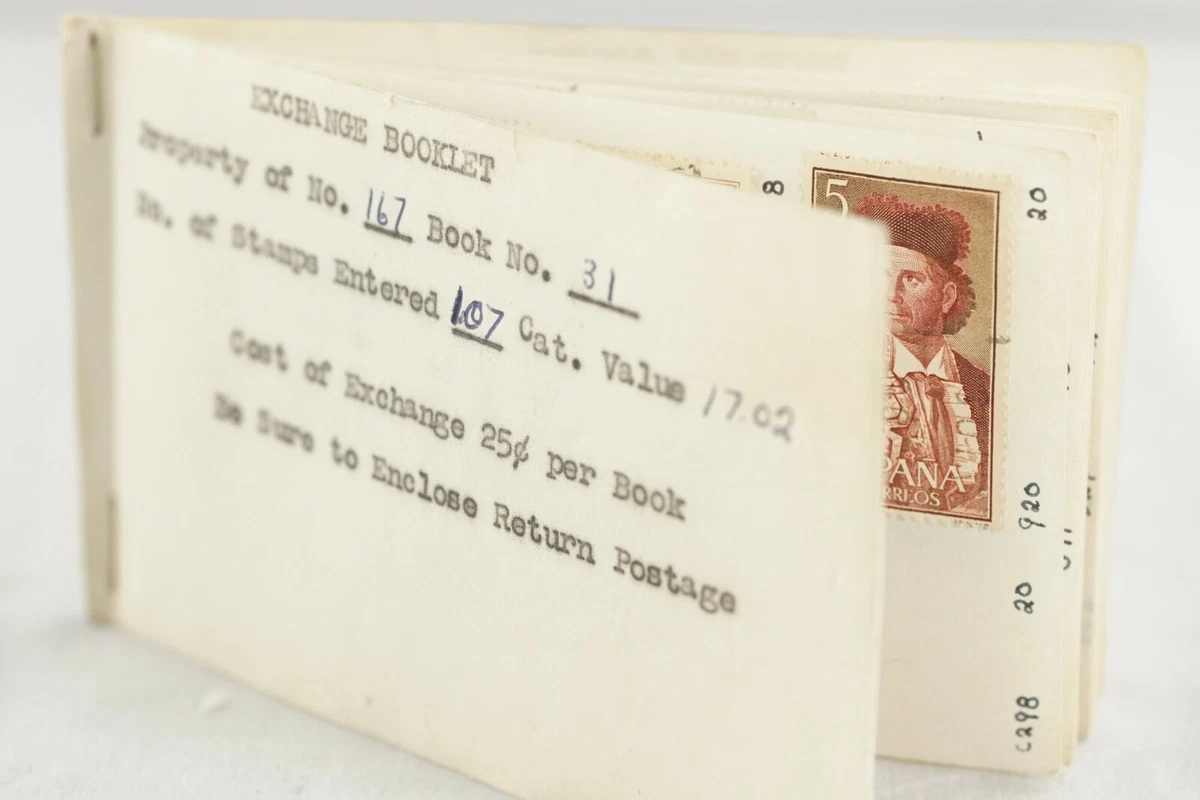 EXCHANGE BOOKLET
Property of No. 167 Book No. 31
No. of Stamps Entered 107 Cat. Value 17.02
Cost of Exchange 25¢ per Book
Be Sure to Enclose Return Postage
8
5
PAÑA
RREOS
20
920
20
C298